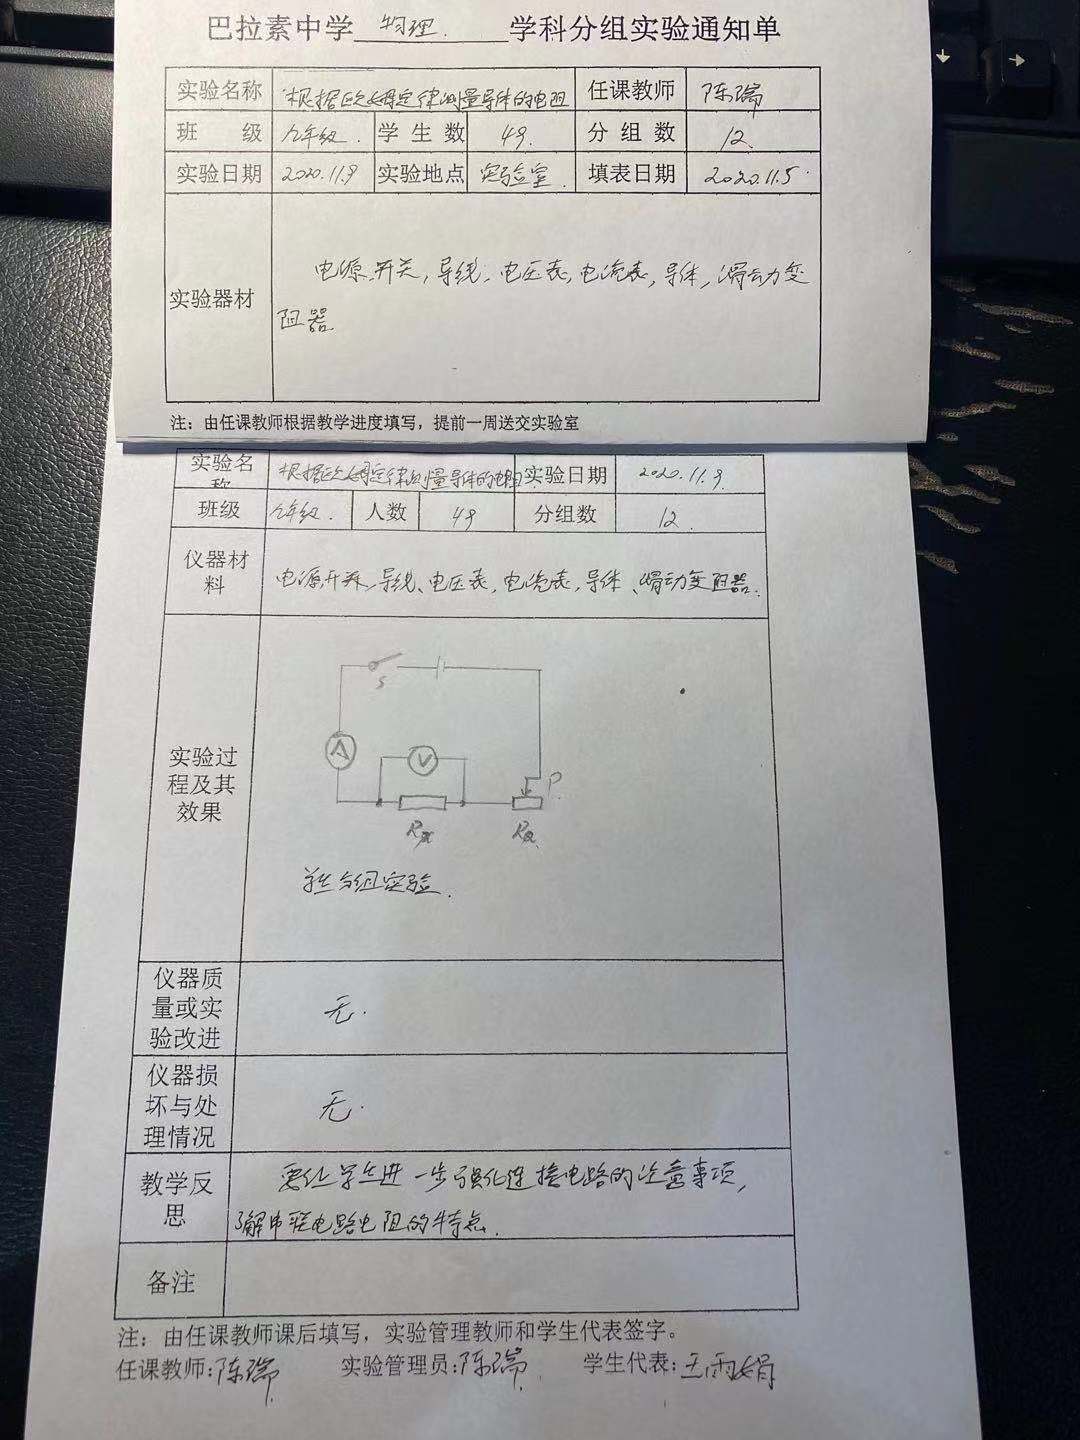 巴拉素中学 物理. 学科分组实验通知单
实验名称 根据欧姆定律测量导体的电阻 任课教师 陈瑞
班 级 九年级. 学生数 49. 分组数 12.
实验日期 2020.11.9 实验地点 实验室. 填表日期 2020.11.5.
电源、开关,导线、电压表,电流表,导体,滑动变
实验器材
阻器
注：由任课教师根据教学进度填写，提前一周送交实验室
实验名称 根据欧姆定律测量导体的电阻 实验日期 2020.11.9.
班级 九年级. 人数 49 分组数 12.
仪器材料 电源,开关,导线、电压表,电流表,导体、滑动变阻器.
S
A
V
P
Rx
实验过程及其效果
学生分组实验.
仪器质量或实验改进 无.
仪器损坏与处理情况 无.
教学反思 要让学生进一步强化连接电路的注意事项,
了解串联电路电阻的特点.
备注
注：由任课教师课后填写，实验管理教师和学生代表签字。
任课教师:陈瑞 实验管理员:陈瑞. 学生代表:王雨娟